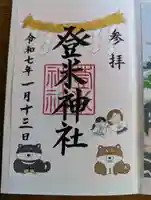 参拝
登米神社
令和七年一月十三日